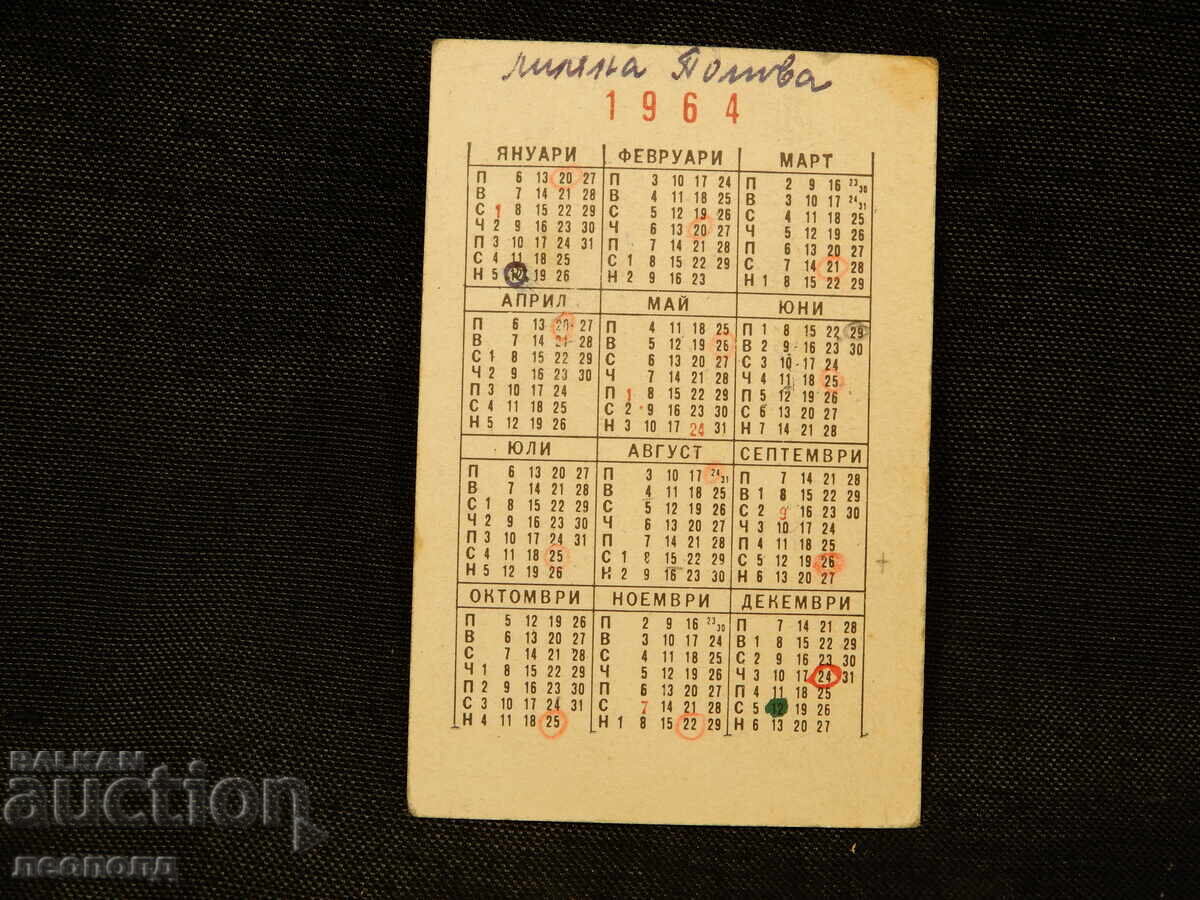 1964
ЯНУАРИ
П 6 13 20 27
В 7 14 21 28
С 1 8 15 22 29
Ч 2 9 16 23 30
П 3 10 17 24 31
С 4 11 18 25
Н 5 12 19 26
ФЕВРУАРИ
П 3 10 17 24
В 4 11 18 25
С 5 12 19 26
Ч 6 13 20 27
П 7 14 21 28
С 1 8 15 22 29
Н 2 9 16 23
МАРТ
П 2 9 16 23 30
В 3 10 17 24 31
С 4 11 18 25
Ч 5 12 19 26
П 6 13 20 27
С 7 14 21 28
Н 1 8 15 22 29
АПРИЛ
П 6 13 20 27
В 7 14 21 28
С 1 8 15 22 29
Ч 2 9 16 23 30
П 3 10 17 24
С 4 11 18 25
Н 5 12 19 26
МАЙ
П 4 11 18 25
В 5 12 19 26
С 6 13 20 27
Ч 7 14 21 28
П 1 8 15 22 29
С 2 9 16 23 30
Н 3 10 17 24 31
ЮНИ
П 1 8 15 22 29
В 2 9 16 23 30
С 3 10 17 24
Ч 4 11 18 25
П 5 12 19 26
С 6 13 20 27
Н 7 14 21 28
ЮЛИ
П 6 13 20 27
В 7 14 21 28
С 1 8 15 22 29
Ч 2 9 16 23 30
П 3 10 17 24 31
С 4 11 18 25
Н 5 12 19 26
АВГУСТ
П 3 10 17 24 31
В 4 11 18 25
С 5 12 19 26
Ч 6 13 20 27
П 7 14 21 28
С 1 8 15 22 29
Н 2 9 16 23 30
СЕПТЕМВРИ
П 7 14 21 28
В 1 8 15 22 29
С 2 9 16 23 30
Ч 3 10 17 24
П 4 11 18 25
С 5 12 19 26
Н 6 13 20 27
ОКТОМВРИ
П 5 12 19 26
В 6 13 20 27
С 7 14 21 28
Ч 1 8 15 22 29
П 2 9 16 23 30
С 3 10 17 24 31
Н 4 11 18 25
НОЕМВРИ
П 2 9 16 23 30
В 3 10 17 24
С 4 11 18 25
Ч 5 12 19 26
П 6 13 20 27
С 7 14 21 28
Н 1 8 15 22 29
ДЕКЕМВРИ
П 7 14 21 28
В 1 8 15 22 29
С 2 9 16 23 30
Ч 3 10 17 24 31
П 4 11 18 25
С 5 12 19 26
Н 6 13 20 27
BALKAN
auction
леополд